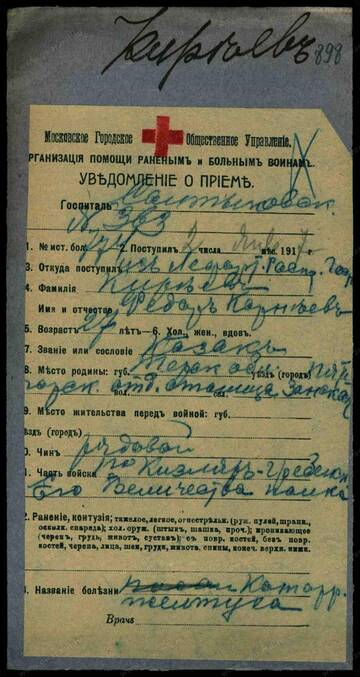 Киреевъ 898
Московское Городское Общественное Управленіе.
ОРГАНИЗАЦІЯ ПОМОЩИ РАНЕНЫМЪ и БОЛЬНЫМЪ ВОИНАМЪ.
УВѢДОМЛЕНІЕ О ПРІЕМѢ.
Госпиталь Салтыковск.
№ 363
1. № ист. бол. 2. Поступилъ 2 числа Янв. мѣс. 1917 г.
3. Откуда поступилъ Расп. Госп
4. Фамилія Киреевъ
Имя и отчество Федоръ Карнѣевъ
5. Возраст 27 лѣтъ—6. Хол., жен., вдов.
7. Званіе или сословіе Казакъ
8. Мѣсто родины: губ. Терск обл. уѣзд (город) Пяти
горск. отд. станица
вол. сел.
9. Мѣсто жительства передъ войной: губ.
уѣзд (город)
10. Чинъ рядовой
11. Часть войска по Кизляръ-Гребенск
Его Величества полка
12. Раненіе, контузія; тяжелое, легкое, огнестрѣльн. (руж. пулей, шрапн.,
осколк. снаряда); хол. оруж. (штык, шашка, проч.); проникающее
(череп, грудь, живот, сустав); съ повр. костей, безъ повр.
костей, черепа, лица, шеи, груди, живота, спины, конеч. верхн. ниж.
13. Названіе болѣзни Катарр.
желтуха
Врачъ